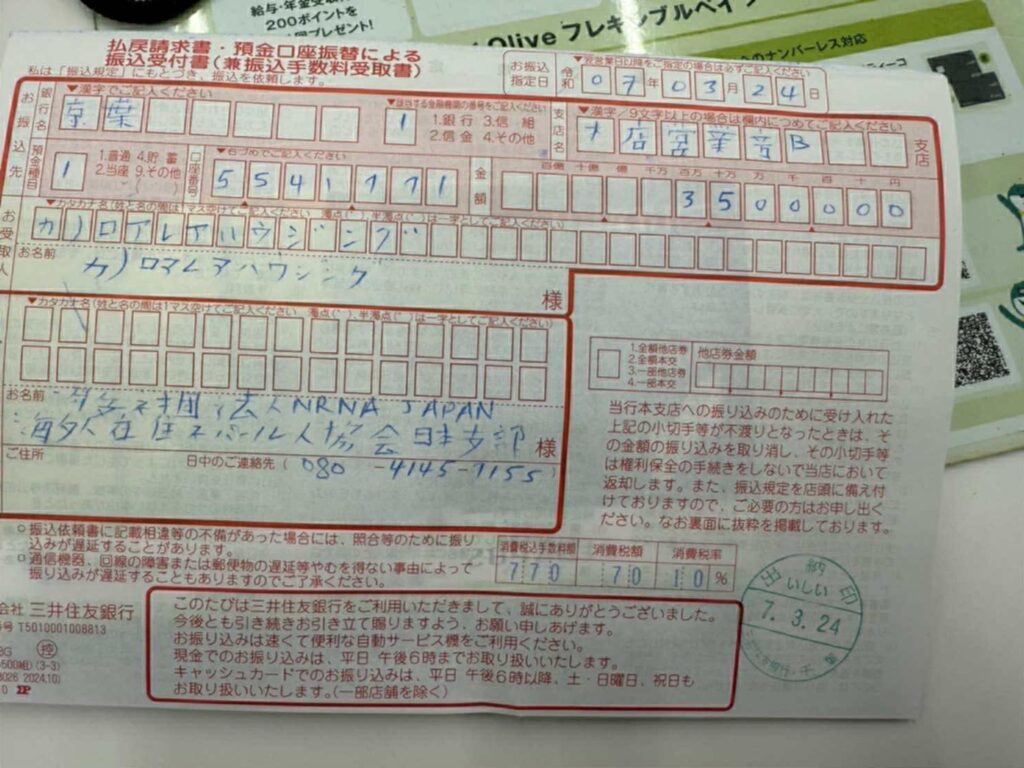 給与・年金受取
200ポイントを
プレゼント!
Olive フレキシブルペイ
のナンバーレス対応
払戻請求書・預金口座振替による
振込受付書(兼振込手数料受取書)
私は「振込規定」にもとづき、振込を依頼します。
お振込指定日
▼翌営業日以降をご指定の場合は必ずご記入ください
令和 07年03月24日
お振込先
銀行名
▼漢字でご記入ください
京葉
▼該当する金融機関の番号をご記入ください
1
1.銀行 3.信組
2.信金 4.その他
支店名
▼漢字/9文字以上の場合は欄内につめてご記入ください
支店
預金種目
1
1.普通 4.貯蓄
2.当座 9.その他
口座番号
▼右づめでご記入ください
5541771
金額
百億 十億 億 千万 百万 十万 万 千 百 十 円
3500000
お受取人
▼カタカナ名(姓と名の間は1マス空けてご記入ください 濁点(゛)、半濁点(゜)は一字としてご記入ください)
お名前
様
▼カタカナ名(姓と名の間は1マス空けてご記入ください 濁点(゛)、半濁点(゜)は一字としてご記入ください)
お名前
法人NRNA JAPAN
海外在住ネパール人協会日本支部
様
ご住所
日中のご連絡先( 080 -4145-7155
1.全額他店券
2.全額本交
3.一部他店券
4.一部本交
他店券金額
当行本支店への振り込みのために受け入れた
上記の小切手等が不渡りとなったときは、そ
の金額の振り込みを取り消し、その小切手等
は権利保全の手続きをしないで当店において
返却します。また、振込規定を店頭に備え付
けておりますので、ご必要の方はお申し出く
ださい。なお裏面に抜粋を掲載しております。
○振込依頼書に記載相違等の不備があった場合には、照合等のために振り
込みが遅延することがあります。
○通信機器、回線の障害または郵便物の遅延等やむを得ない事由によって
振り込みが遅延することもありますのでご了承ください。
消費税込手数料額 消費税額 消費税率
770 70 10%
出納印
いしい
7.3.24
会社 三井住友銀行
番号 T5010001008813
控
(3-3)
2024.10)
このたびは三井住友銀行をご利用いただきまして、誠にありがとうございました。
今後とも引き続きお引き立て賜りますよう、お願い申しあげます。
お振り込みは速くて便利な自動サービス機をご利用ください。
現金でのお振り込みは、平日 午後6時までお取り扱いいたします。
キャッシュカードでのお振り込みは、平日 午後6時以降、土・日曜日、祝日も
お取り扱いいたします。(一部店舗を除く)